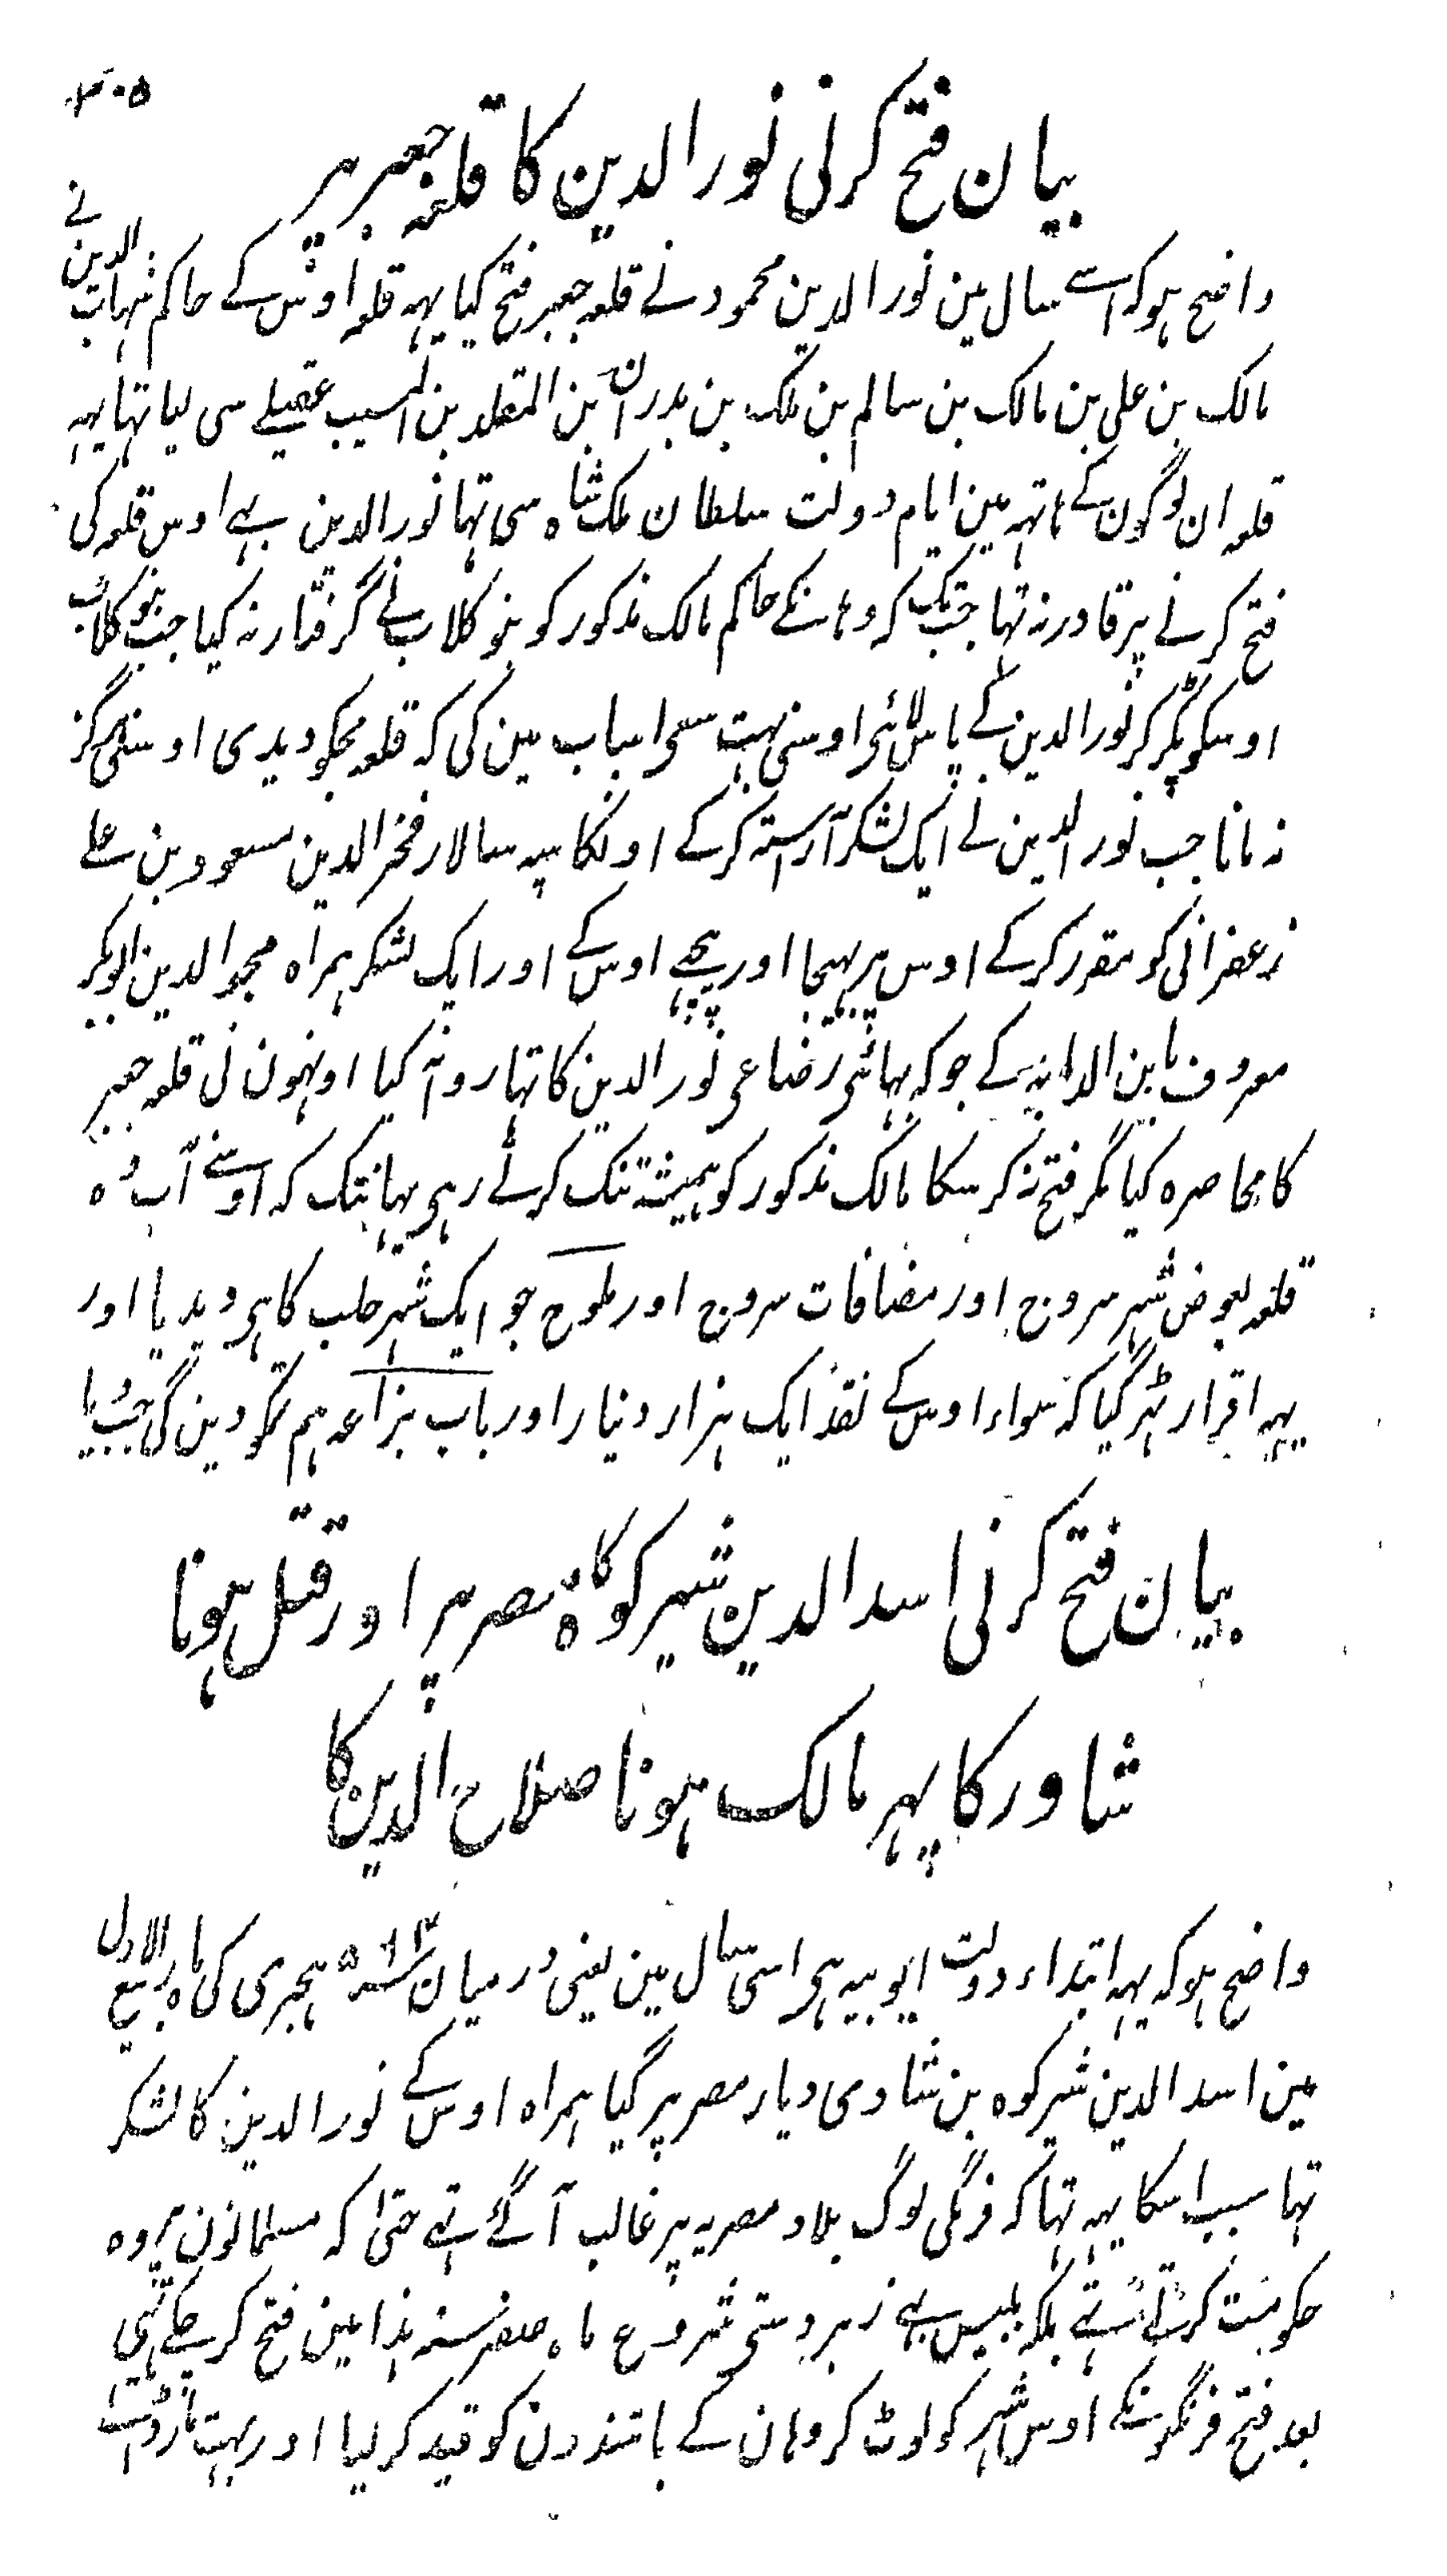 ۳۰۵
بیان فتح کرنی نورالدین کا قلعہ جعبر پر
واضح ہوکہ اسے سال مین نورالدین محمود نے قلعہ جعبر فتح کیا یہہ قلعہ اوس کے حاکم شہاب الدین نے
مالک بن علی بن مالک بن سالم بن ملک بن بدران بن المقلد بن المسیب عقیلے سی لیا تہا یہہ
قلعہ ان لوگون کے ہاتہہ مین ایام دولت سلطان ملک شاہ سی تہا نورالدین بہے اوس قلعہ کی
فتح کرنے پر قادر نہ تہا جبتک کہ وہانکے حاکم مالک مذکور کو بنو کلاب نے گرفتار نہ کیا جب بنو کلاب
اوسکو پکڑ کر نورالدین کے پاس لائی اوسنی بہت سعی اسباب مین کی کہ قلعہ مجکو دیدی اوسنی ہرگز
نہ مانا جب نورالدین نے ایک لشکر آراستہ کرکے اونکا سپہ سالار فخرالدین مسعود بن علے
زعفرانی کو مقرر کرکے اوس پر بہیجا اور پیچہے اوس کے اور ایک لشکر ہمراہ مجدالدین ابوبکر
معروف بابن الدایہ کے جو کہ بہائی رضاعی نورالدین کا تہا روانہ کیا اونہون نی قلعہ جعبر
کا محاصرہ کیا مگر فتح نہ کر سکا مالک مذکور کو ہمیشہ تنگ کرتے رہی یہانتک کہ اوسنے آپ وہ
قلعہ بعوض شہر سروج اور مضافات سروج اور ملوح جو ایک شہر حلب کا ہی دیدیا اور
یہہ اقرار ٹہر گیا کہ سواء اوس کے نقد ایک ہزار دینار اور باب بزاعہ ہم تمکو دین گی جب دیا
بیان فتح کرنی اسدالدین شیرکوہ کا مصر پر اور قتل ہونا
شاور کا پہر مالک ہونا صلاح الدین کا
واضح ہوکہ یہہ ابتداء دولت ایوبیہ ہی اسی سال مین یعنی درمیان ۵۶۴ سنہ ہجری کی ماہ ربیع الاول
مین اسدالدین شیرکوہ بن شادی دیار مصر پر گیا ہمراہ اوس کے نورالدین کا لشکر
تہا سبب اسکا یہہ تہا کہ فرنگی لوگ بلاد مصریہ پر غالب آ گئے تہے حتی کہ مسلمانون پر وہ
حکومت کرتے تہے بلکہ بلبیس بہے زبردستی شروع ماہ صفر سنہ ہذا مین فتح کر چکے تہی
بعد فتح فرنگیونکے اوس شہر کو لوٹ کر وہان کے باشندون کو قید کر لیا اور بہت